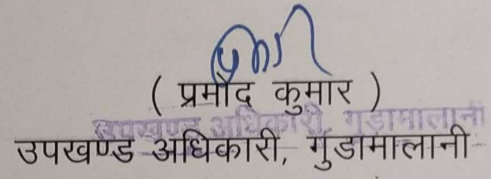 ( प्रमोद कुमार )
उपखण्ड अधिकारी, गुडामालानी
उपखण्ड अधिकारी, गुंडामालानी